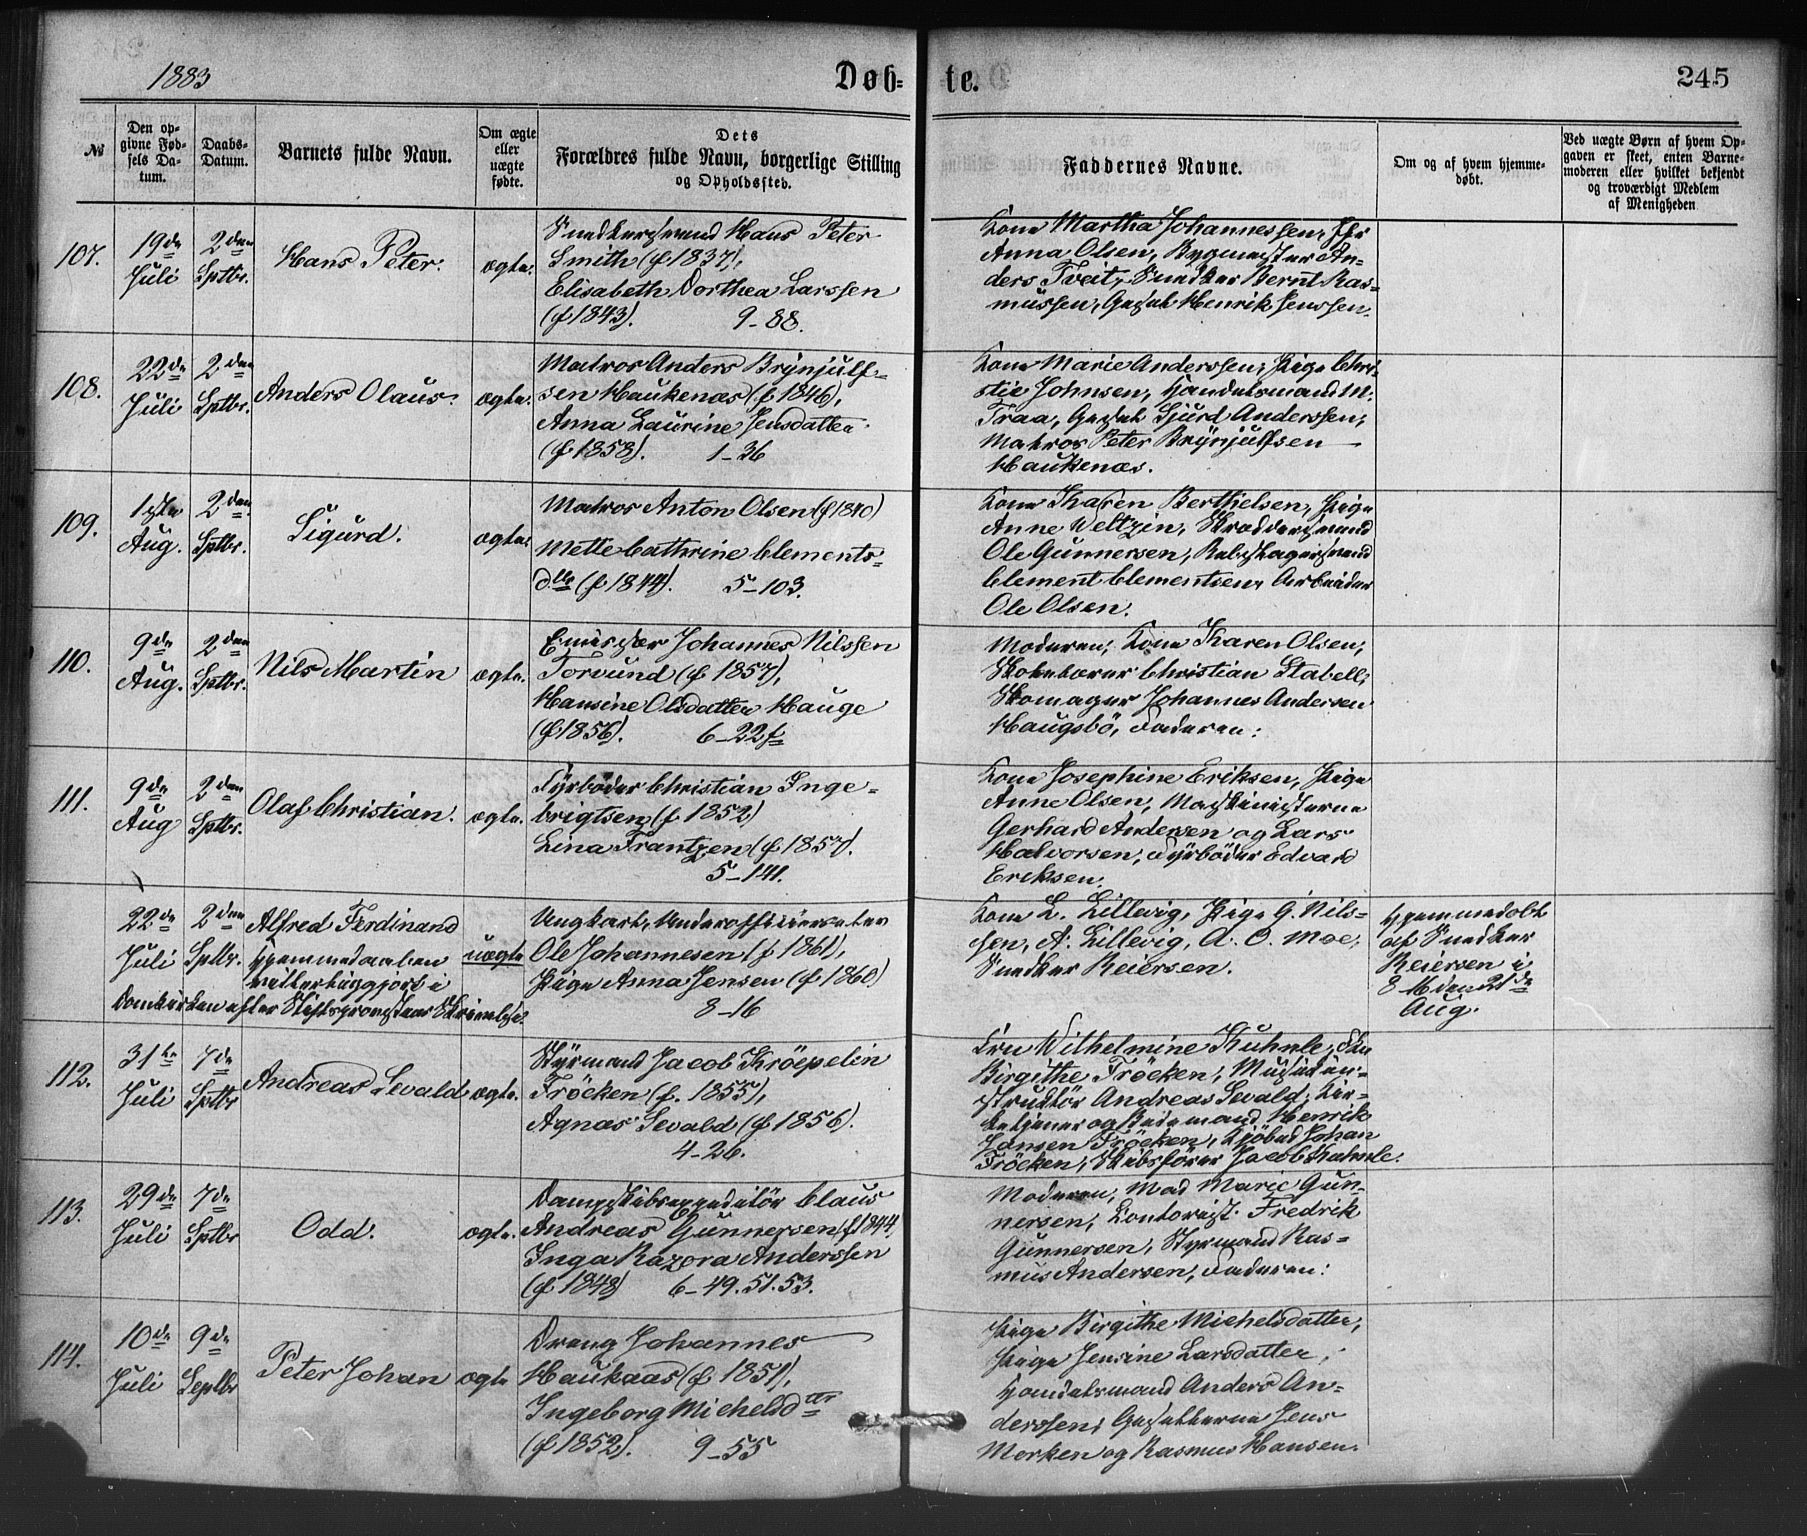 1883
Døb-
te.
245
№
Den op-
givne Fød-
sels Da-
tum.
Daabs-
Datum.
Barnets fulde Navn.
Om ægte
eller
uægte
fødte.
Dets
Forældres fulde Navn, borgerlige Stilling
og Opholdssted.
Faddernes Navne.
Om og af hvem hjemme-
døbt.
Ved uægte Børn af hvem Op-
gaven er skeet, enten Barne-
moderen eller hvilket bekjendt
og troværdigt Medlem
af Menigheden
107.
19de
Juli
2den
Sptbr.
Hans Peter.
ægte.
Snedkersvend Hans Peter
Smith (f 1837),
Elisabeth Dorthea Larssen
(f 1843). 9-88.
Kone Martha Johannessen,
Anna Olsen, Bygmester An-
ders Tveit, Snedker Bernt Ras-
mussen, Gesel Henrik Jenssen.
108.
22de
Juli
2den
Sptbr.
Anders Olaus.
ægte.
Matros Anders Brynjulf-
sen Haukenæs (f 1846),
Anna Laurine Jensdatter
(f 1858). 1-36
Kone Marie Anderssen, Pige Chri-
stie Johnsen, Handelsmand M.
Traa, Gesel Sjurd Anderssen,
Matros Peter Brynjulfsen
Haukenæs.
109.
1ste
Aug.
2den
Sptbr.
Sigurd.
ægte.
Matros Anton Olsen (f 1840)
Mette Cathrine Clements-
dtr (f 1844). 5-103.
Kone Karen Berthelsen, Pige
Anne Weltzin, Skræddersvend
Ole Gunnersen, Rebslagersvend
Clement Clementsen, Arbeider
Ole Olsen.
110.
9de
Aug.
2den
Sptbr.
Nils Martin
ægte.
Johannes Nilssen
Torvund (f 1857),
Hansine Olsdatter Hauge
(f 1856). 6-22f
Moderen, Kone Karen Olsen,
Christian Stabell,
Skomager Johannes Andersen
Haugsbö, Faderen:
111.
9de
Aug
2den
Sptbr.
Olaf Christian.
ægte.
Fyrböder Christian Inge-
brigtsen (f 1852)
Lina Frantzen (f 1857).
5-141.
Kone Josephine Eriksen, Pige
Anne Olsen, Maskinisterne
Gerhard Andersen og Lars
Halvorsen, Fyrböder Edvard
Eriksen.
22de
Juli
2den
Sptbr.
Alfred Ferdinand
Hjemmedaaben
vitterliggjort i
Domkirken efter Stiftsprovstens Skrivelse.
uægte
Ungkarl, Underofficierselev
Ole Johannesen (f 1861),
Pige Anna Jensen (f 1860)
8-16
Kone L. Lillevig, Pige G. Nils-
sen, A. Lillevig, A. O. Moe,
Snedker Reiersen.
Hjemmedøbt
af Snedker
Reiersen i
8-16 den 21de
Aug.
112.
31te
Juli
7de
Sptbr
Andreas Sevald
ægte.
Styrmand Jacob Kröepelin
Fröcken (f. 1855),
Agnes Sevald (f 1856).
4-26.
Fru Wilhelmine Kuhnle,
Birgithe Fröcken, Musikin-
struktör Andreas Sevald, Kir-
ketjener og Bedemand Henrik
Jansen Fröcken, Johan
Fröcken, Skibsfører Jacob Kuhnle.
113.
29de
Juli
7de
Sptbr
Odd.
ægte.
Dampskibsexpeditör Claus
Andreas Gunnersen (f 1844,
Inga Razora Anderssen
(f 1848) 6-49.51.53.
Moderen, Mad Marie Gun-
nersen, Kontorist Fredrik
Gunnersen, Styrmand Ras-
mus Andersen, Faderen:
114.
10de
Juli
9de
Septbr
Peter Johan
ægte
Dreng Johannes
Haukaas (f 1851),
Ingeborg Michelsdtr
(f 1852). 9-55
Pige Birgithe Michelsdatter,
Pige Jensine Larsdatter,
Handelsmand Anders An-
derssen, Gesellerne Jens
Morken og Rasmus Hansen.